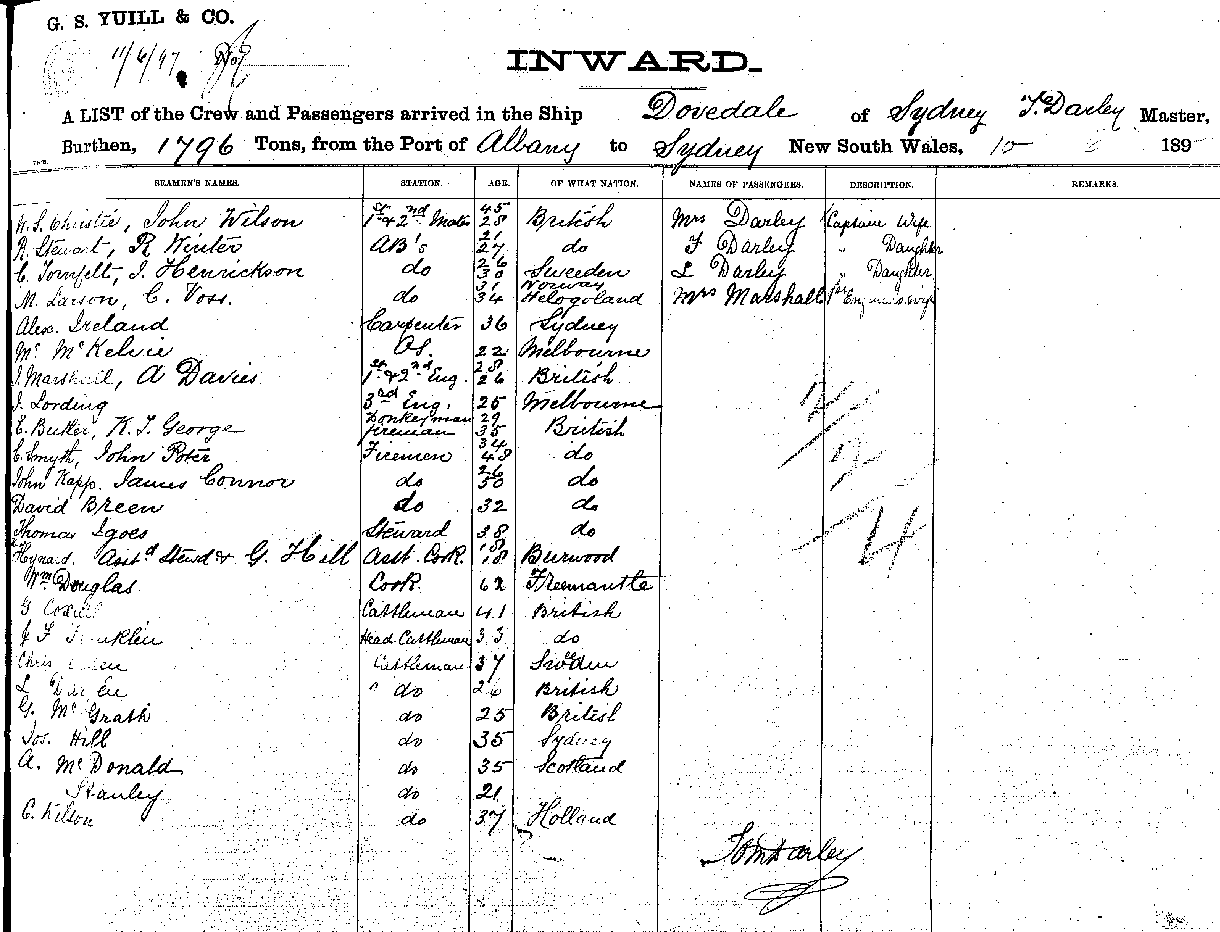 G. S. YUILL & CO.
11/6/97
INWARD.
A LIST of the Crew and Passengers arrived in the Ship Dovedale of Sydney T. Darley Master,
Burthen, 1796 Tons, from the Port of Albany to Sydney New South Wales, 10 189
SEAMEN'S NAMES. STATION. AGE. OF WHAT NATION. NAMES OF PASSENGERS. DESCRIPTION. REMARKS.
W. S. Christie, John Wilson 1st & 2nd Mates 45 28 British Mrs Darley Captains Wife
R. Stewart, R Winter AB's 21 27 do F Darley " Daughter
C. Tornfelt, J. Henrickson do 26 30 Sweeden L Darley " Daughter
M. Larson, C. Voss. do 31 34 Norway Helogoland Mrs Marshall 1st Engineers wife
Alex. Ireland Carpenter 36 Sydney
Mc Kelvie OS. 22 Melbourne
J. Marshall, A Davies 1st & 2nd Eng. 28 26 British
J. Lording 3rd Eng. 25 Melbourne
E. Butler, K. J. George Donkeyman fireman 29 35 British
C. Smyth, John Poter Firemen 34 48 do
John Kapp. James Connor do 26 50 do
David Breen do 32 do
Thomas Igoes Steward 38 do
Heynard. Asst Stewd & G. Hill Asst. Cook 18 18 Burwood
Wm Douglas Cook 62 Freemantle
G Cattleman 41 British
J F Head Cattleman 33 do
Chris Cattleman 37 Sweden
L " do 26 British
G. Mc Grath do 25 British
Jos. Hill do 35 Sydney
A. Mc Donald do 35 Scotland
Stanley do 21
C. Kilson do 37 Holland
12/
12
14
Tom Darley